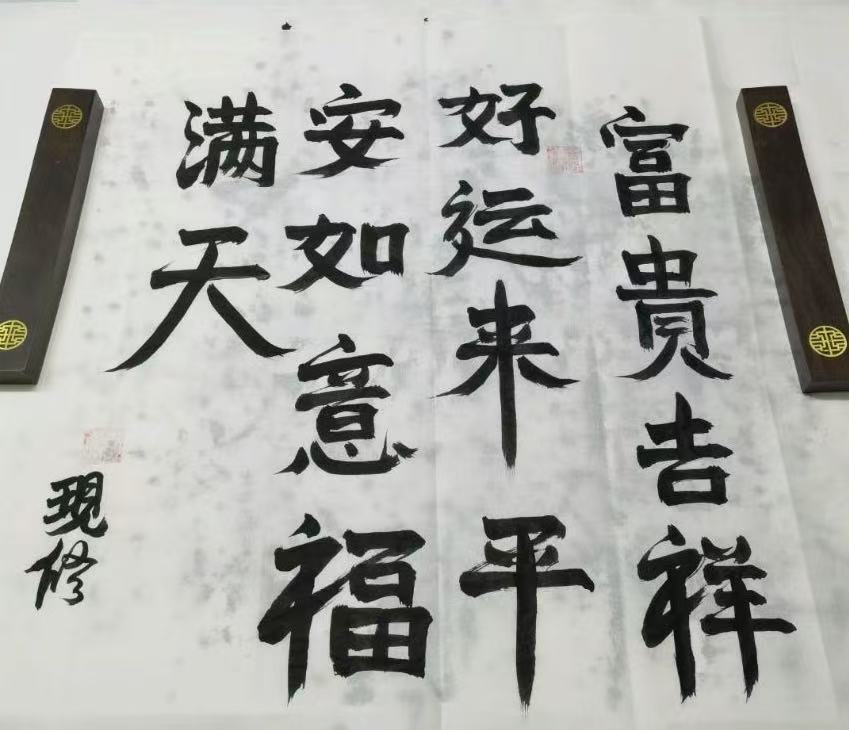 富貴吉祥
好运来平
安如意福
满天
现修